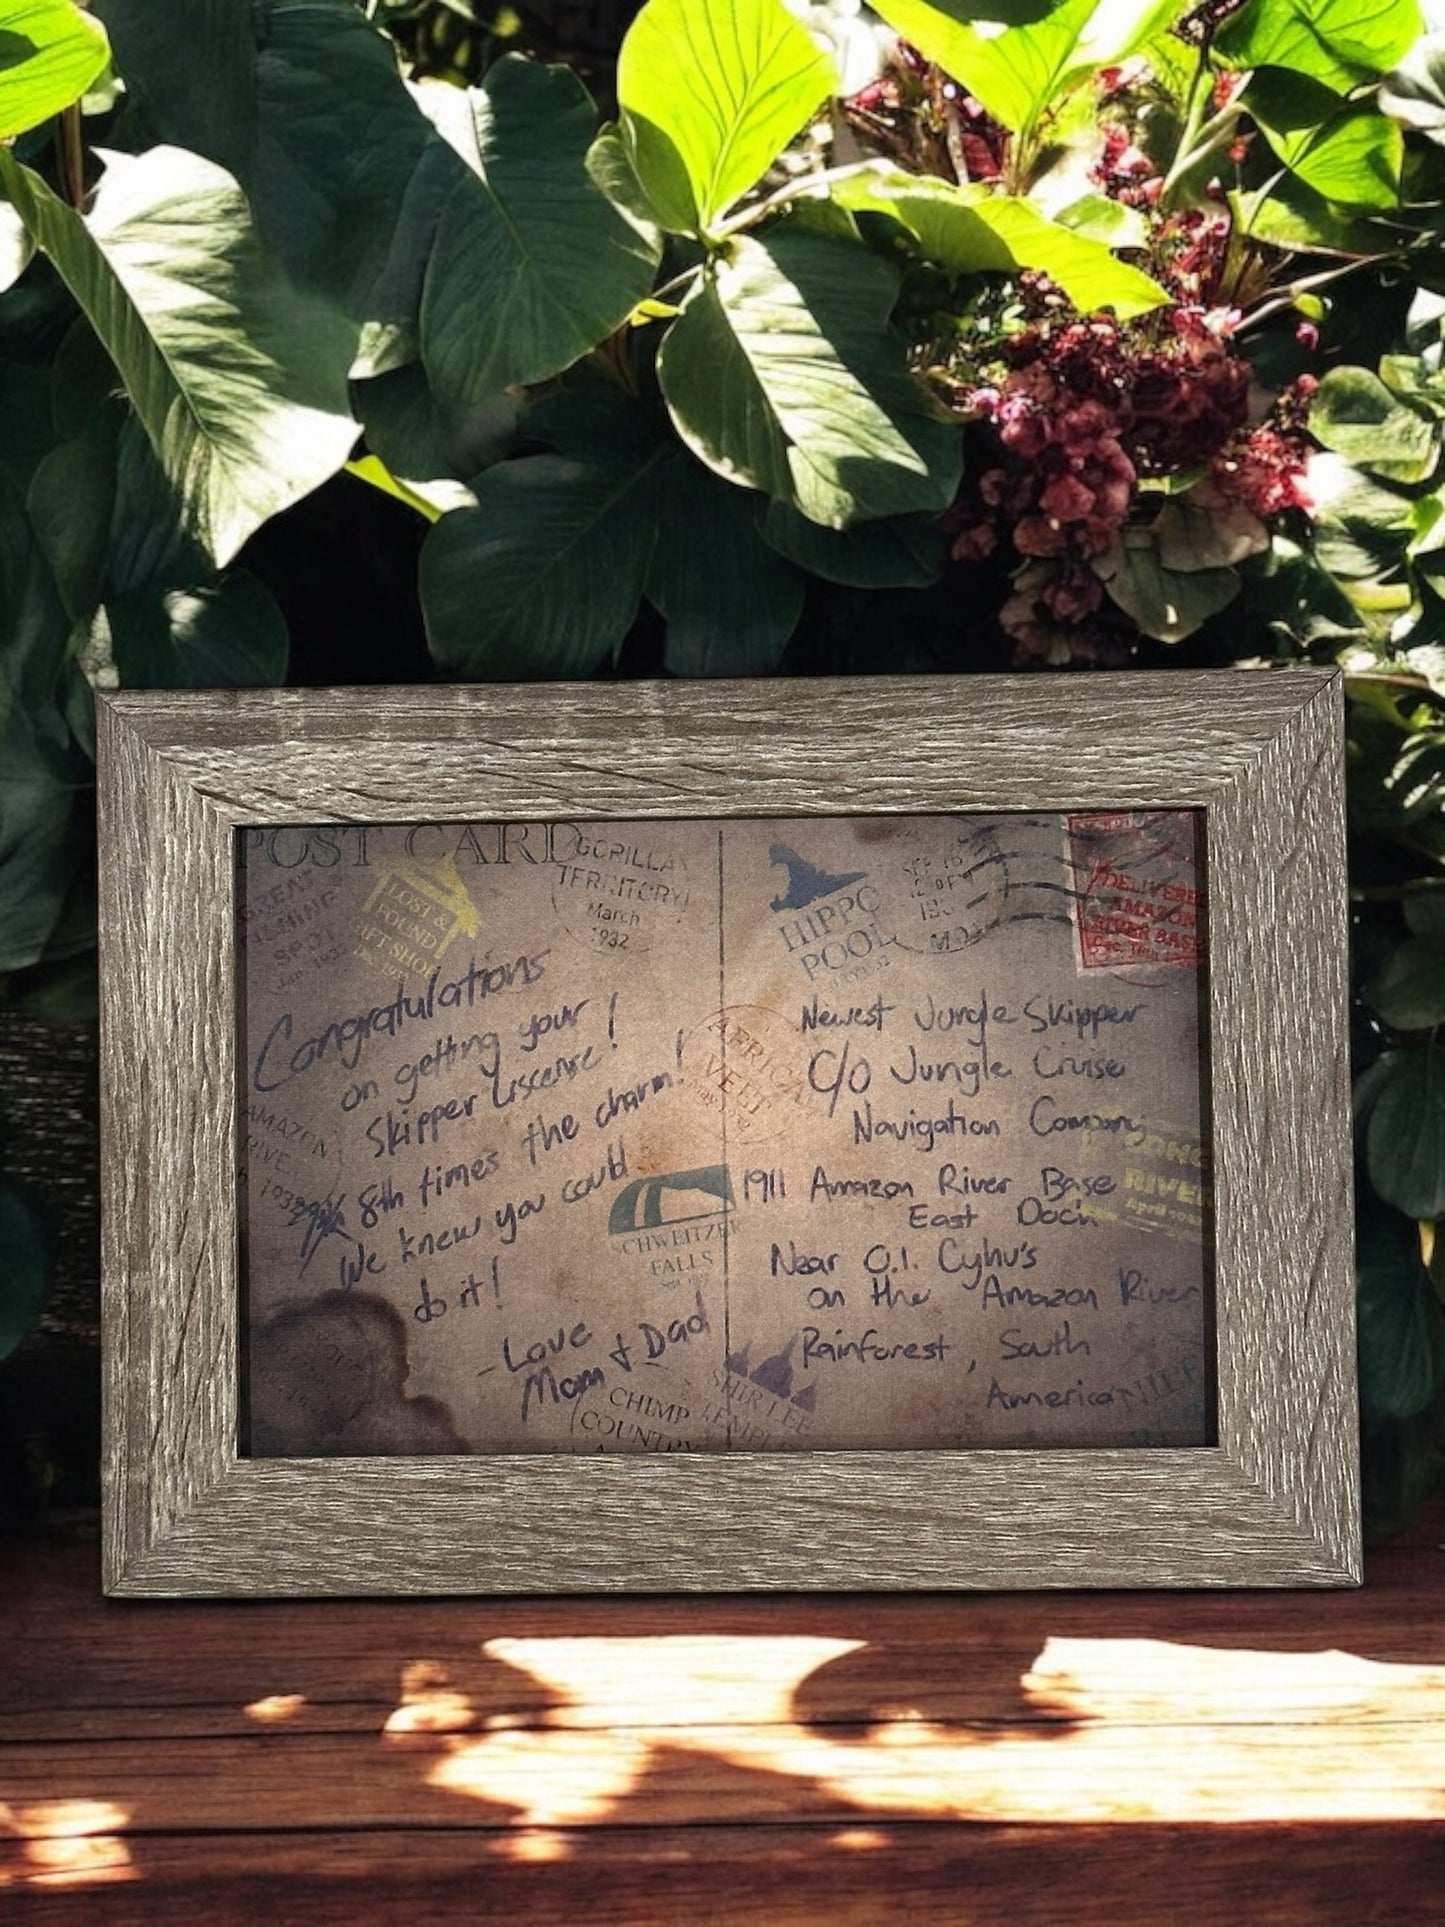 POST CARD
GREAT
FISHING
SPOT
Jan. 193
LOST &
FOUND
GIFT SHOP
GORILLA
TERRITORY!
March
1932
HIPPO
POOL
SEP 16
MO
DELIVERED
AMAZON
RIVER BASE
Congratulations
on getting your
Skipper Liscense!
8th times the charm!
We knew you could
do it!
-Love
Mom & Dad
AMAZON
RIVER
1932
AFRICA
VELT
SCHWEITZER
FALLS
CHIMP
COUNTRY
Newest Jungle Skipper
C/O Jungle Cruise
Navigation Company
1911 Amazon River Base
East Dock
Near O.I. Cyhu's
on the Amazon River
Rainforest, South
America
CONGO
RIVER
April
SHIRLEE
TEMPLE
NILE